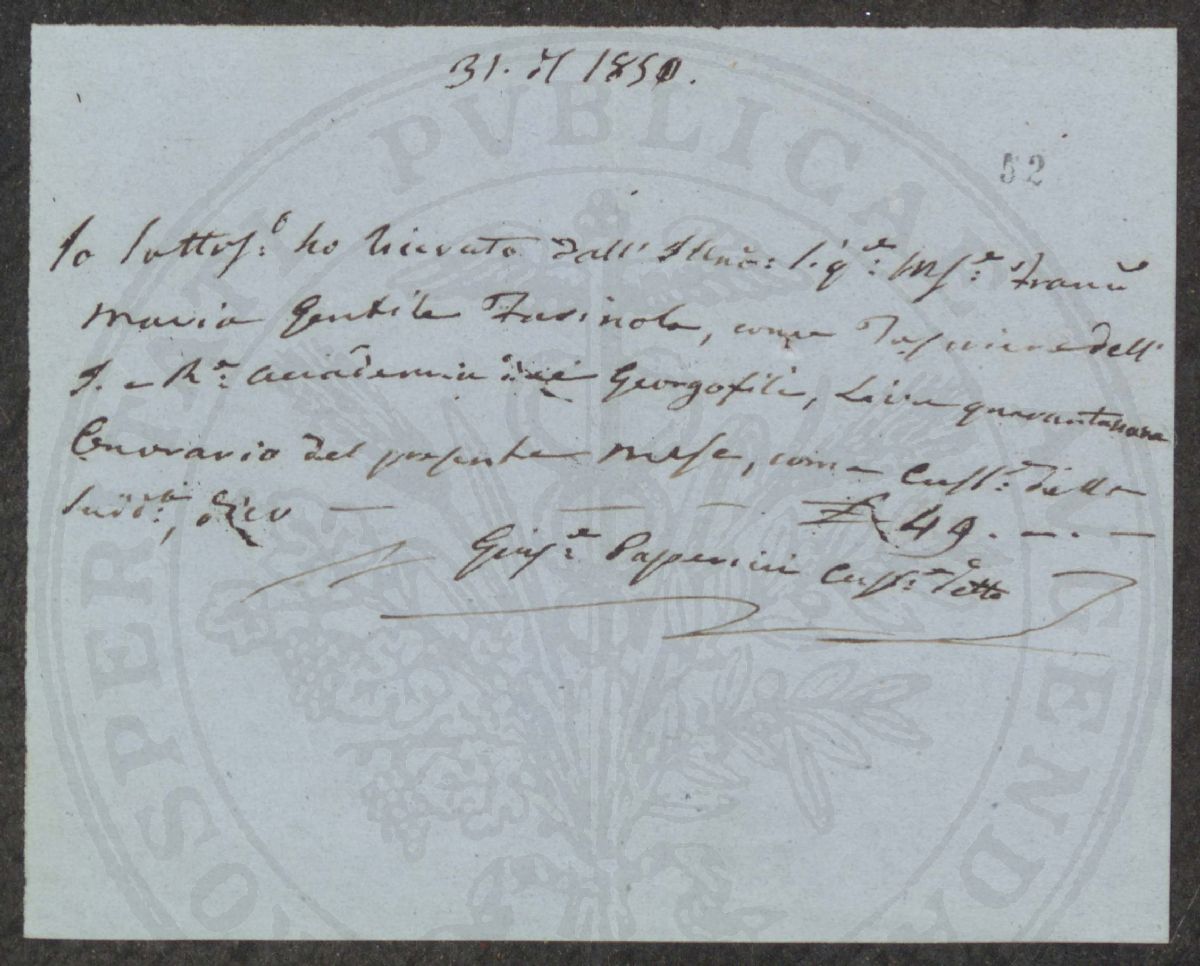 31. 1850.
52
Io Sottos.º ho ricevuto dall' Illmo: Sig.e M.se Franc.o
Maria Gentile Farinola, come Tesoriere dell'
I. e R.e Accademia dei Georgofili, Lire quarantanove
Onorario del presente mese, come Cus.e della
Sudd.a, dico — — — £ 49. —. —
Gius.e Paperini Cus.e detto
PROSPERITATI PVBLICAE AVGENDAE